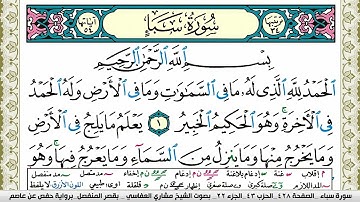 سُورَةُ سَبَأ
بِسْمِ اللَّهِ الرَّحْمَٰنِ الرَّحِيمِ
الْحَمْدُ لِلَّهِ الَّذِي لَهُ مَا فِي السَّمَاوَاتِ وَمَا فِي الْأَرْضِ وَلَهُ الْحَمْدُ
فِي الْآخِرَةِ ۚ وَهُوَ الْحَكِيمُ الْخَبِيرُ ١ يَعْلَمُ مَا يَلِجُ فِي الْأَرْضِ
وَمَا يَخْرُجُ مِنْهَا وَمَا يَنزِلُ مِنَ السَّمَاءِ وَمَا يَعْرُجُ فِيهَا ۚ وَهُوَ
سورة سباء . الصفحة ٤٢٨ الحزب ٤٣ الجزء ٢٢ بصوت الشيخ مشاري العفاسي بقصر المنفصل برواية حفص عن عاصم